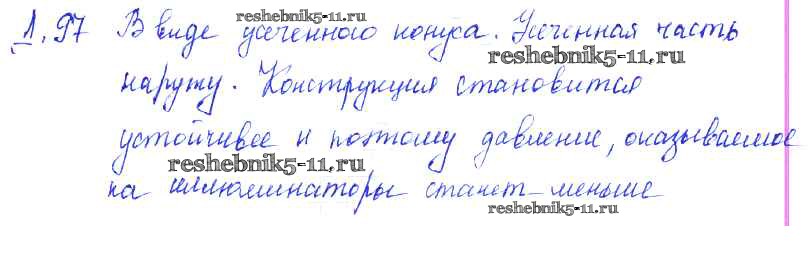 reshebnik5-11.ru
1.97 В виде усеченного конуса. Усеченная часть
reshebnik5-11.ru
наружу. Конструкция становится
устойчивее и поэтому давление, оказываемое
reshebnik5-11.ru
на иллюминаторы станет меньше
reshebnik5-11.ru